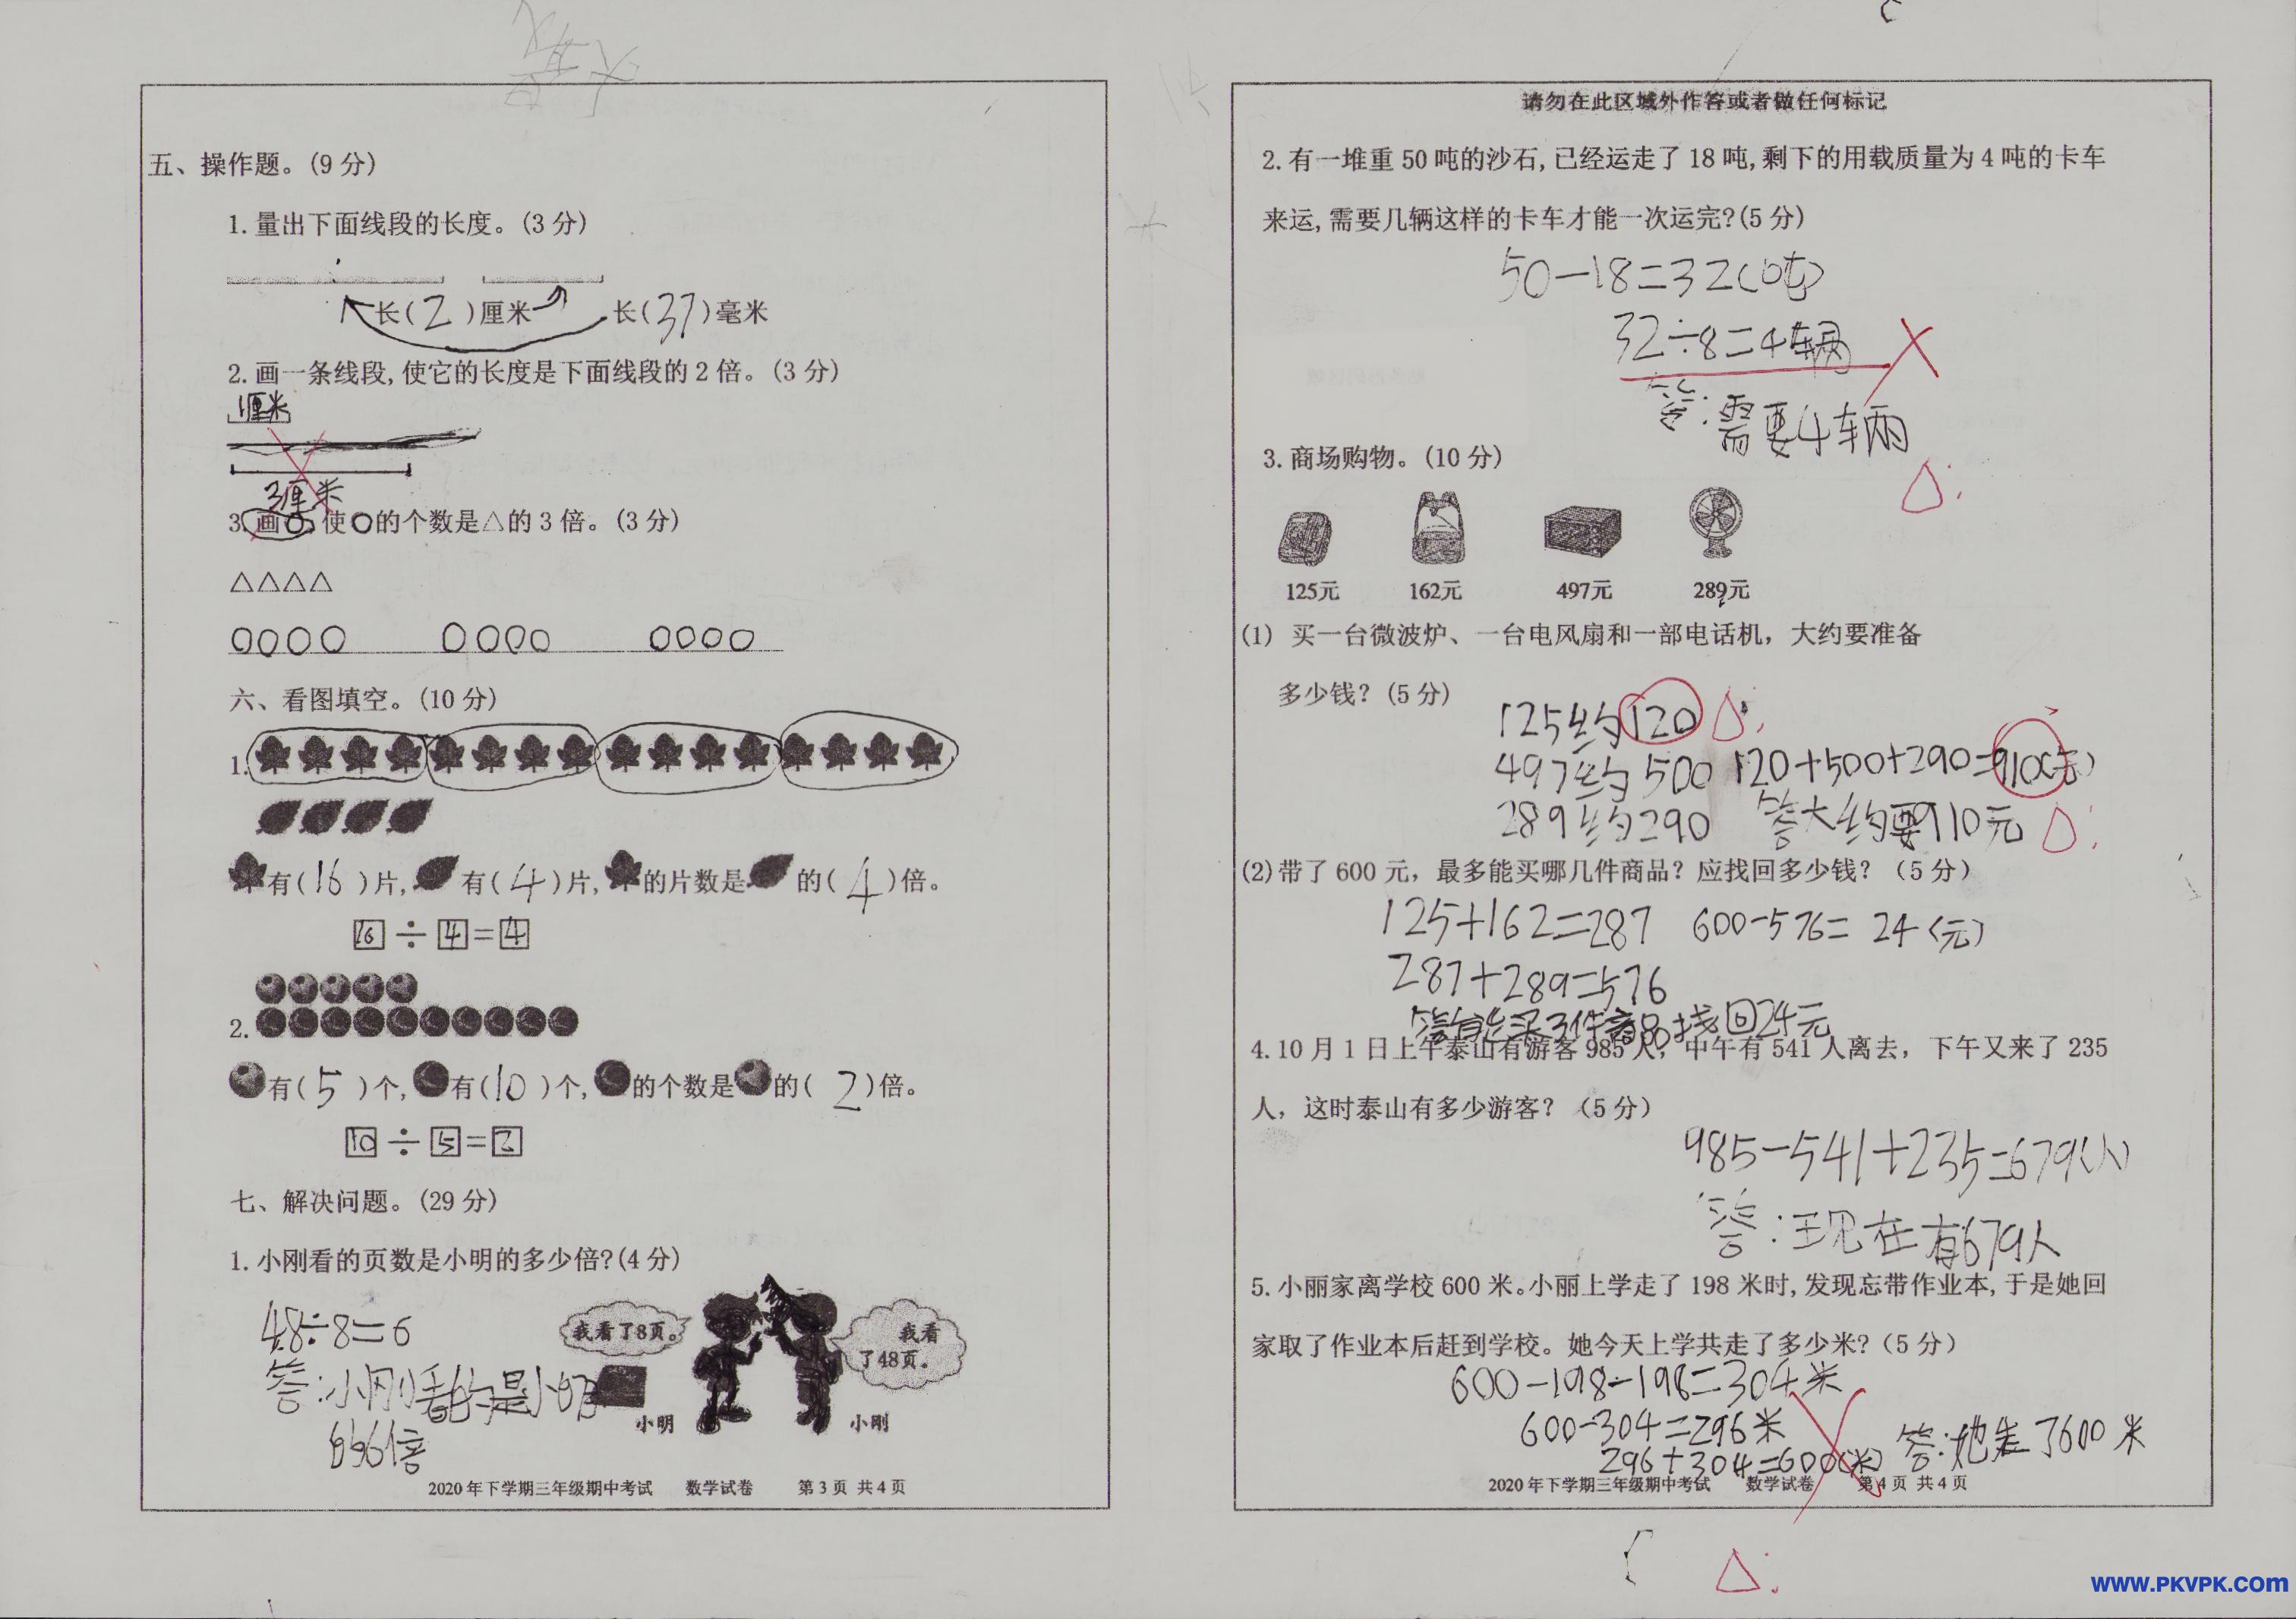 五、操作题。(9 分)
1. 量出下面线段的长度。(3 分)
长(2)厘米 长(37)毫米
2. 画一条线段, 使它的长度是下面线段的 2 倍。(3 分)
1厘米
3厘米
3. 画○, 使○的个数是△的 3 倍。(3 分)
△△△△
○○○○ ○○○○ ○○○○
六、看图填空。(10 分)
1.
有(16)片, 有(4)片, 的片数是 的(4)倍。
16÷4=4
2.
有(5)个, 有(10)个, 的个数是 的(2)倍。
10÷5=2
七、解决问题。(29 分)
1. 小刚看的页数是小明的多少倍?(4 分)
48÷8=6
我看了8页。
我看
了48页。
答:小刚看的是小明
的6倍
小明 小刚
2020 年下学期三年级期中考试 数学试卷 第 3 页 共 4 页
请勿在此区域外作答或者做任何标记
2. 有一堆重 50 吨的沙石, 已经运走了 18 吨, 剩下的用载质量为 4 吨的卡车
来运, 需要几辆这样的卡车才能一次运完?(5 分)
50-18=32(吨)
32÷8=4辆
答:需要4车辆
3. 商场购物。(10 分)
125元 162元 497元 289元
(1) 买一台微波炉、一台电风扇和一部电话机，大约要准备
多少钱? (5 分)
125约120
497约500 120+500+290=910(元)
289约290 答大约要910元
(2)带了 600 元，最多能买哪几件商品？应找回多少钱？（5 分）
125+162=287 600-576=24(元)
287+289=576
买3件商品找回24元
4. 10 月 1 日上午泰山有游客 985 人，中午有 541 人离去，下午又来了 235
人，这时泰山有多少游客？（5 分）
985-541+235=679(人)
答:现在有679人
5. 小丽家离学校 600 米。小丽上学走了 198 米时, 发现忘带作业本, 于是她回
家取了作业本后赶到学校。她今天上学共走了多少米?（5 分）
600-198-198=304米
600-304=296米
296+304=600(米) 答:她走了600米
2020 年下学期三年级期中考试 数学试卷 第 4 页 共 4 页
www.PKVPK.com